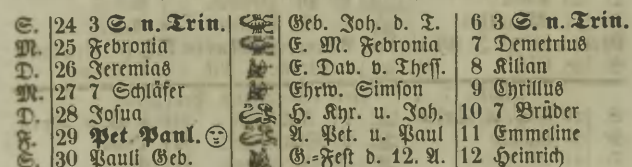 S. 24 3 S. n. Trin. Geb. Joh. d. T. 6 3 S. n. Trin.
M. 25 Febronia E. M. Febronia 7 Demetrius
D. 26 Jeremias E. Dav. v. Thess. 8 Kilian
M. 27 7 Schläfer Ehrw. Simson 9 Cyrillus
D. 28 Josua H. Khr. u. Joh. 10 7 Brüder
29 Pet. Paul. A. Pet. u. Paul 11 Emmeline
S. 30 Pauli Geb. G.=Fest d. 12. A. 12 Heinrich